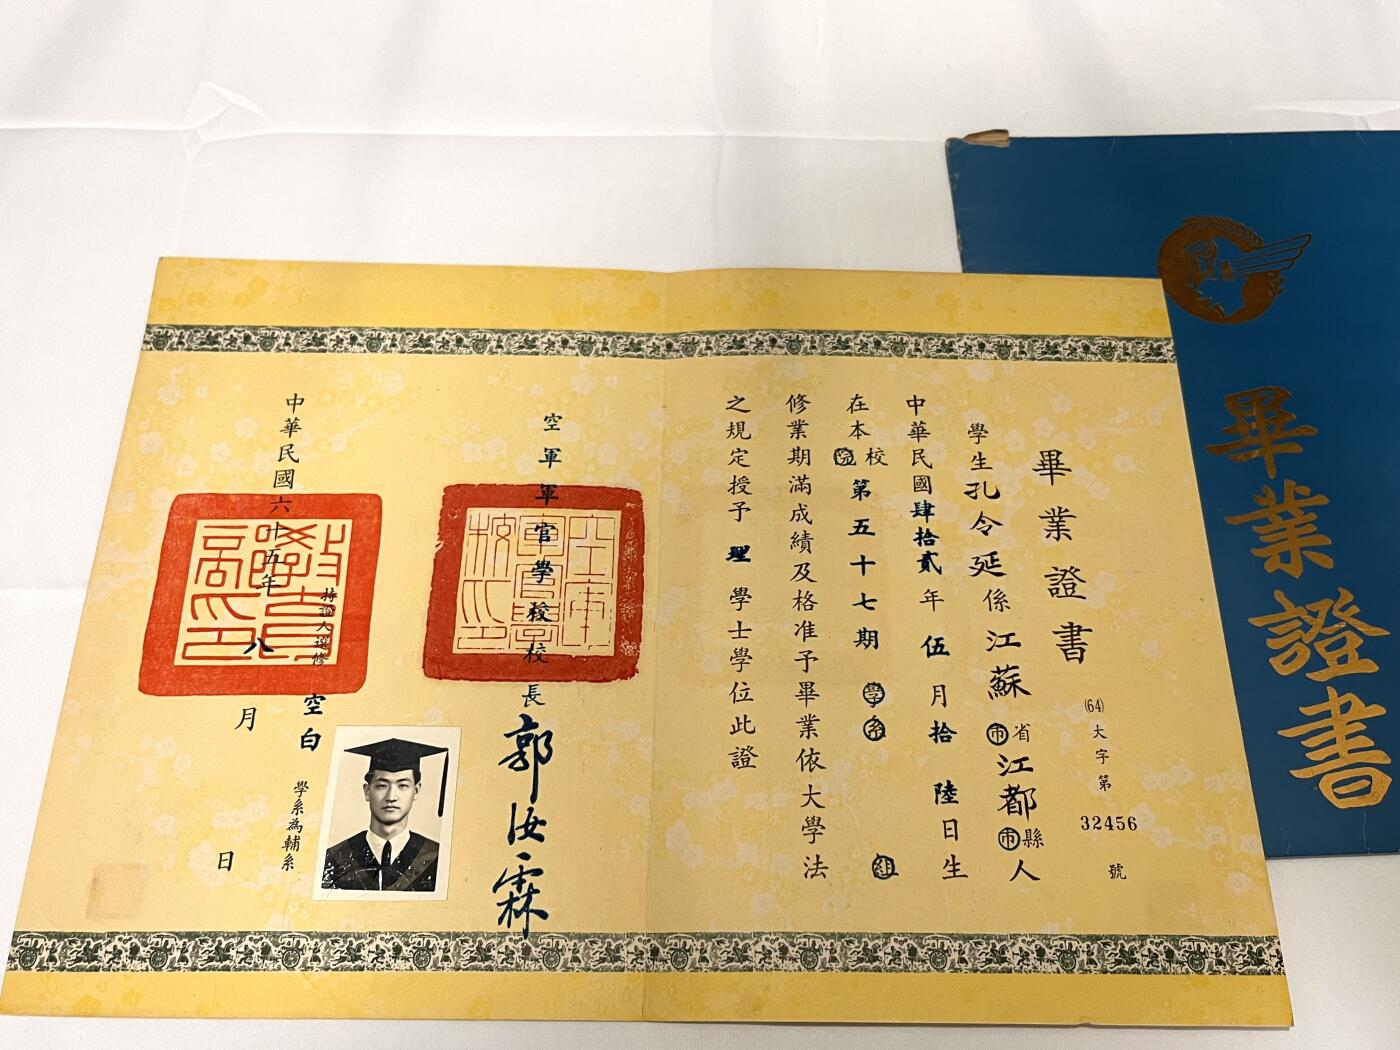 畢業證書
(64)大字第32456號
學生孔令延係江蘇省市江都縣市人
中華民國肆拾貳年伍月拾陸日生
在本校院第五十七期學系組
修業期滿成績及格准予畢業依大學法
之規定授予理學士學位此證
空軍軍官學校校長郭汝霖
空軍軍官學校印
持證人選修空白學系為輔系
中華民國六十五年八月日
教育部印
畢業證書